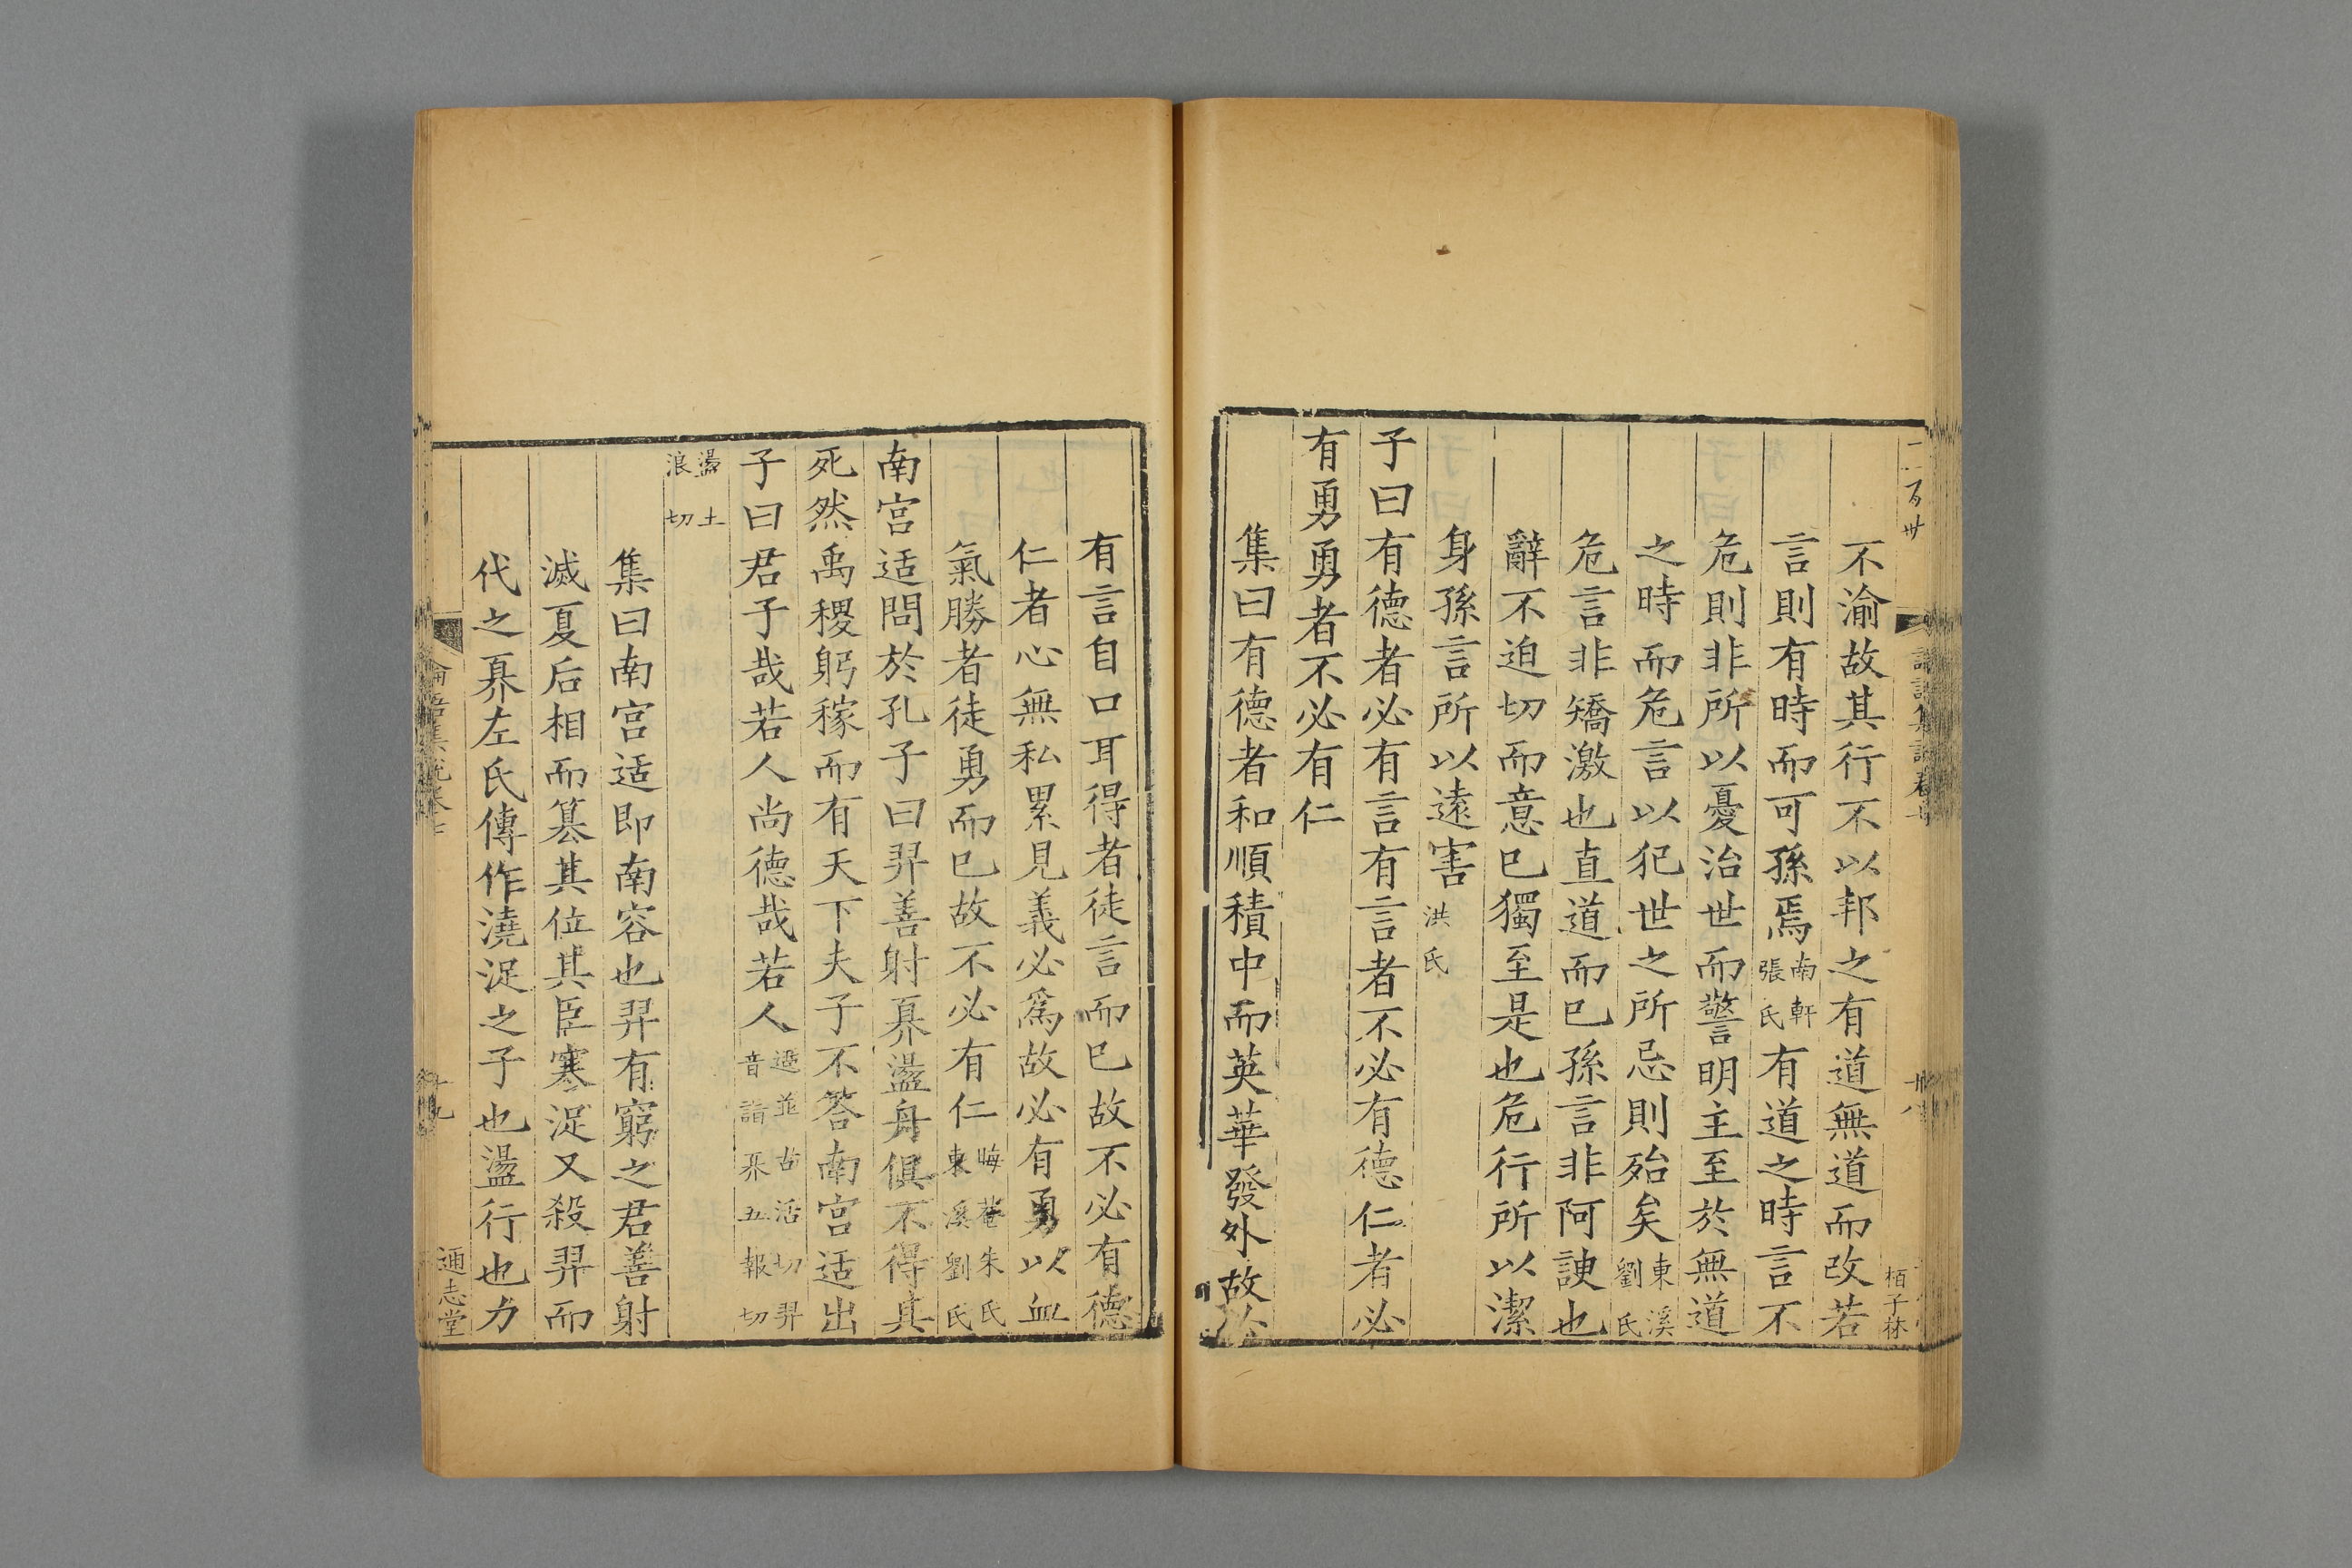 不渝故其行不以邦之有道無道而改若
言則有時而可孫焉南軒張氏有道之時言不
危則非所以憂治世而警明主至於無道
之時而危言以犯世之所忌則殆矣東溪劉氏
危言非矯激也直道而已孫言非阿諛也
辭不迫切而意已獨至是也危行所以潔
身孫言所以遠害洪氏
子曰有德者必有言有言者不必有德仁者必
有勇勇者不必有仁
集曰有德者和順積中而英華發外故必
有言自口耳得者徒言而已故不必有德
仁者心無私累見義必爲故必有勇以血
氣勝者徒勇而已故不必有仁晦菴朱氏東溪劉氏
南宮适問於孔子曰羿善射奡盪舟俱不得其
死然禹稷躬稼而有天下夫子不答南宮适出
子曰君子哉若人尚德哉若人适並古活切羿音詣奡五報切
盪土浪切
集曰南宮适即南容也羿有窮之君善射
滅夏后相而篡其位其臣寒浞又殺羿而
代之奡左氏傳作澆浞之子也盪行也力
論語集說卷七
十九
通志堂